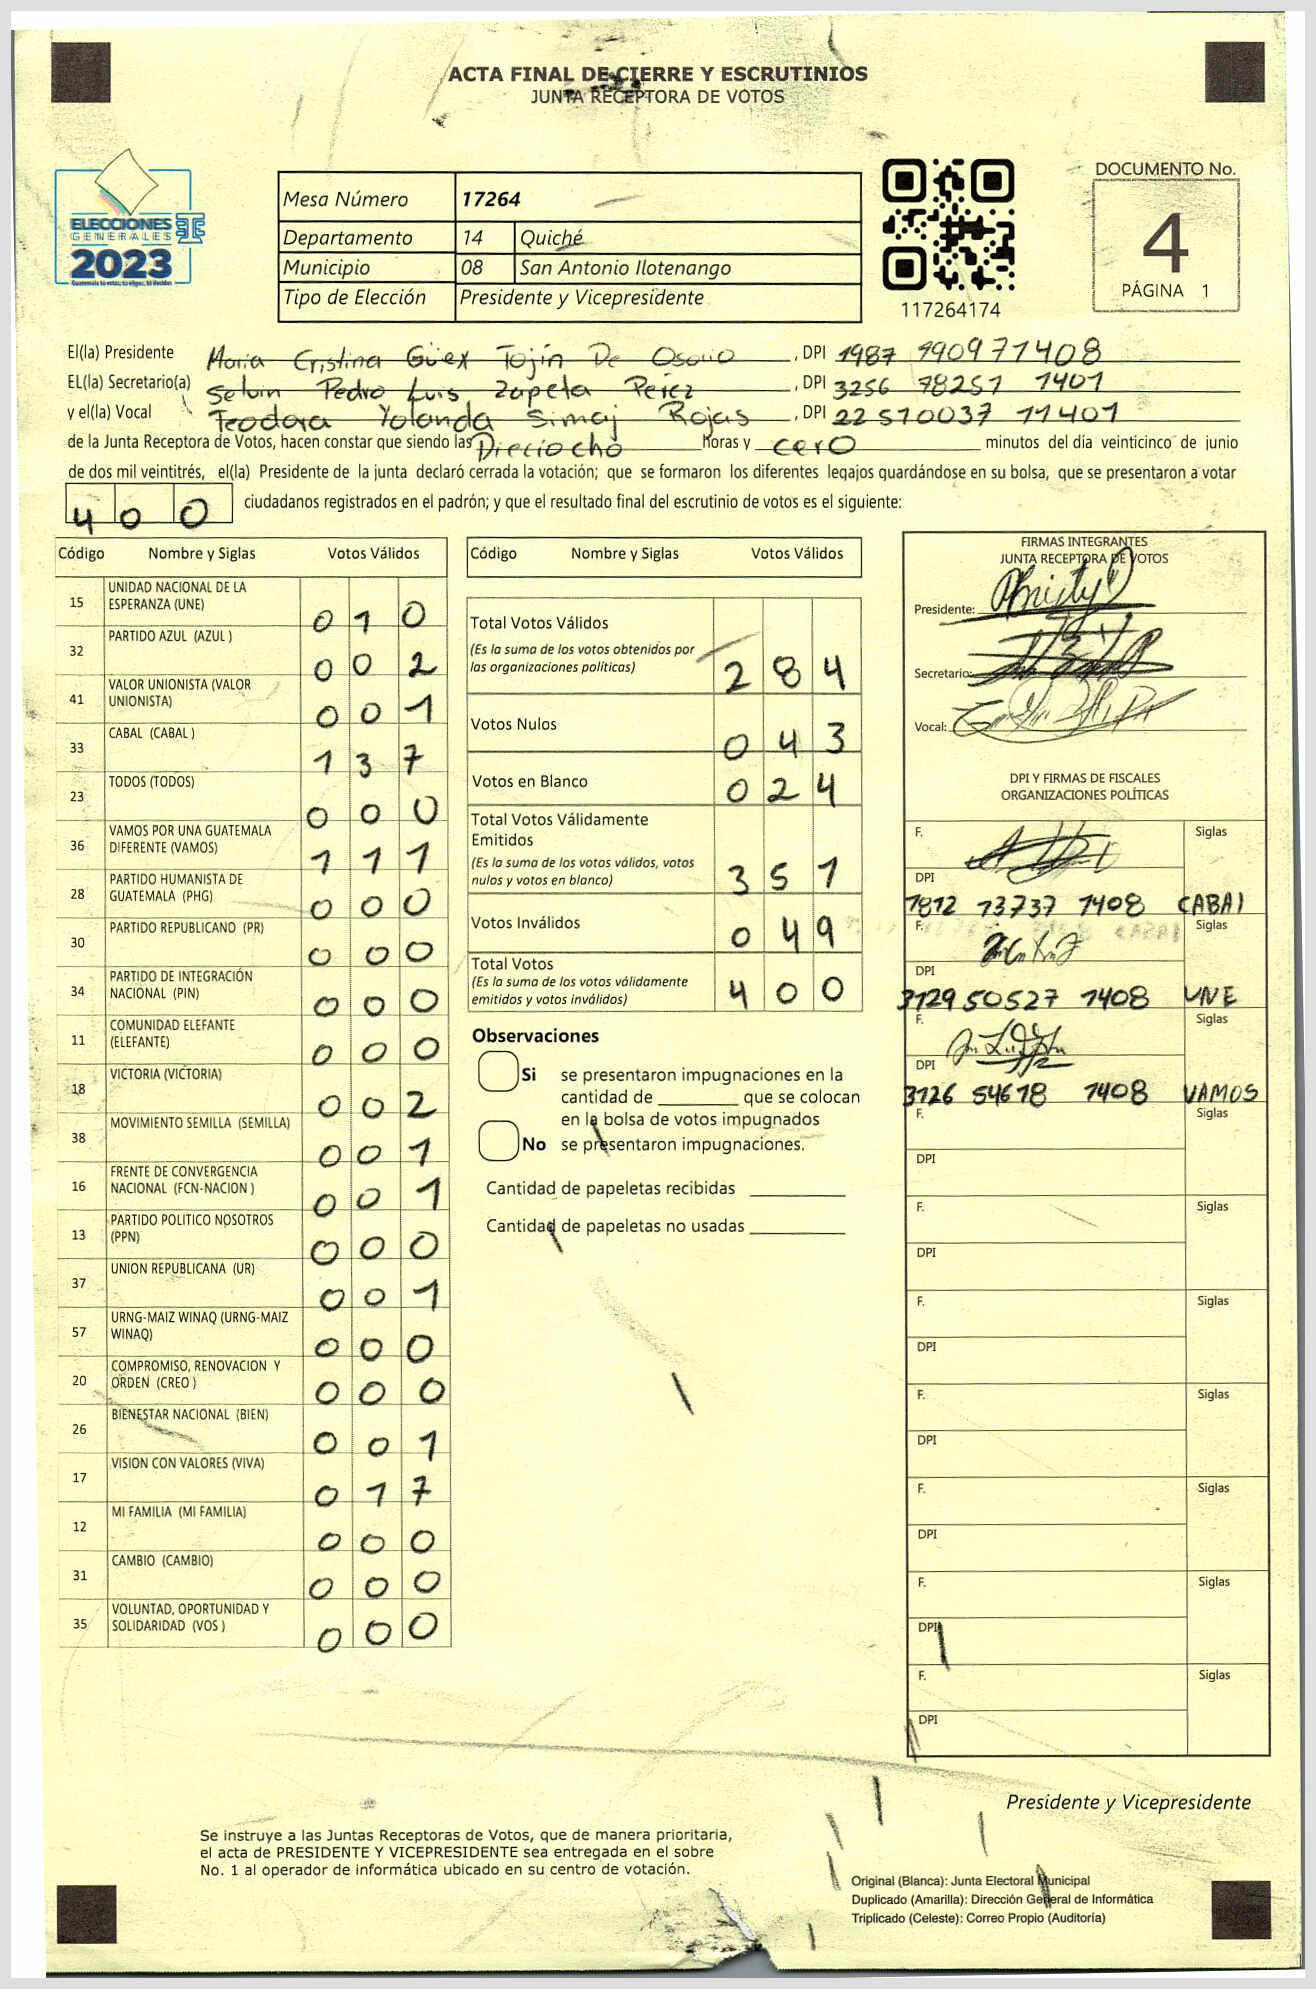 ACTA FINAL DE CIERRE Y ESCRUTINIOS
JUNTA RECEPTORA DE VOTOS
ELECCIONES
GENERALES
2023
Guatemala tú votas, tú eliges, tú decides
Mesa Número 17264
Departamento 14 Quiché
Municipio 08 San Antonio Ilotenango
Tipo de Elección Presidente y Vicepresidente
117264174
DOCUMENTO No.
4
PÁGINA 1
El(la) Presidente Maria Cristina Güex Tojín De Osorio, DPI 1987 990971408
EL(la) Secretario(a) Selvin Pedro Luis Zapeta Perez, DPI 3256 78251 1401
y el(la) Vocal Teodora Yolanda Simaj Rojas, DPI 22 510037 11401
de la Junta Receptora de Votos, hacen constar que siendo las Dieciocho horas y cero minutos del día veinticinco de junio
de dos mil veintitrés, el(la) Presidente de la junta declaró cerrada la votación; que se formaron los diferentes legajos guardándose en su bolsa, que se presentaron a votar
400 ciudadanos registrados en el padrón; y que el resultado final del escrutinio de votos es el siguiente:
Código Nombre y Siglas Votos Válidos
15 UNIDAD NACIONAL DE LA ESPERANZA (UNE) 010
32 PARTIDO AZUL (AZUL ) 002
41 VALOR UNIONISTA (VALOR UNIONISTA) 001
33 CABAL (CABAL ) 137
23 TODOS (TODOS) 000
36 VAMOS POR UNA GUATEMALA DIFERENTE (VAMOS) 111
28 PARTIDO HUMANISTA DE GUATEMALA (PHG) 000
30 PARTIDO REPUBLICANO (PR) 000
34 PARTIDO DE INTEGRACIÓN NACIONAL (PIN) 000
11 COMUNIDAD ELEFANTE (ELEFANTE) 000
18 VICTORIA (VICTORIA) 002
38 MOVIMIENTO SEMILLA (SEMILLA) 001
16 FRENTE DE CONVERGENCIA NACIONAL (FCN-NACION ) 001
13 PARTIDO POLITICO NOSOTROS (PPN) 000
37 UNION REPUBLICANA (UR) 001
57 URNG-MAIZ WINAQ (URNG-MAIZ WINAQ) 000
20 COMPROMISO, RENOVACION Y ORDEN (CREO ) 000
26 BIENESTAR NACIONAL (BIEN) 001
17 VISION CON VALORES (VIVA) 017
12 MI FAMILIA (MI FAMILIA) 000
31 CAMBIO (CAMBIO) 000
35 VOLUNTAD, OPORTUNIDAD Y SOLIDARIDAD (VOS ) 000
Código Nombre y Siglas Votos Válidos
Total Votos Válidos 284
(Es la suma de los votos obtenidos por
las organizaciones políticas)
Votos Nulos 043
Votos en Blanco 024
Total Votos Válidamente
Emitidos 351
(Es la suma de los votos válidos, votos
nulos y votos en blanco)
Votos Inválidos 049
Total Votos 400
(Es la suma de los votos válidamente
emitidos y votos inválidos)
Observaciones
Si se presentaron impugnaciones en la
cantidad de ________ que se colocan
en la bolsa de votos impugnados
No se presentaron impugnaciones.
Cantidad de papeletas recibidas
Cantidad de papeletas no usadas
FIRMAS INTEGRANTES
JUNTA RECEPTORA DE VOTOS
Presidente:
Secretario:
Vocal:
DPI Y FIRMAS DE FISCALES
ORGANIZACIONES POLÍTICAS
F. Siglas
DPI
1812 13737 1408 CABAl
F. Siglas
DPI
3129 50527 1408 UNE
F. Siglas
DPI
3126 54618 1408 VAMOS
F. Siglas
DPI
F. Siglas
DPI
F. Siglas
DPI
F. Siglas
DPI
F. Siglas
DPI
F. Siglas
DPI
F. Siglas
DPI
Presidente y Vicepresidente
Se instruye a las Juntas Receptoras de Votos, que de manera prioritaria,
el acta de PRESIDENTE Y VICEPRESIDENTE sea entregada en el sobre
No. 1 al operador de informática ubicado en su centro de votación.
Original (Blanca): Junta Electoral Municipal
Duplicado (Amarilla): Dirección General de Informática
Triplicado (Celeste): Correo Propio (Auditoría)